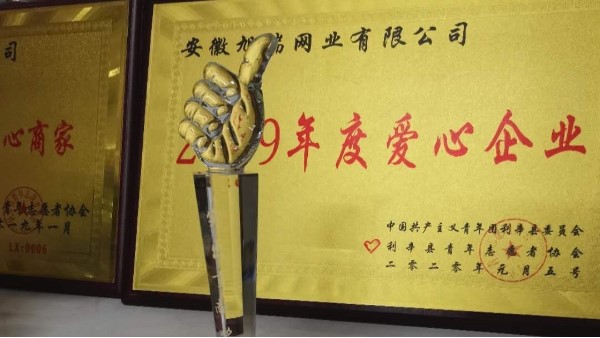 司
心商家
志愿者协会
九年一月
LA:0006
安徽旭瑞网业有限公司
2019年度爱心企业
中国共产主义青年团利辛县委员会
利辛县青年志愿者协会
二零二零年元月五号